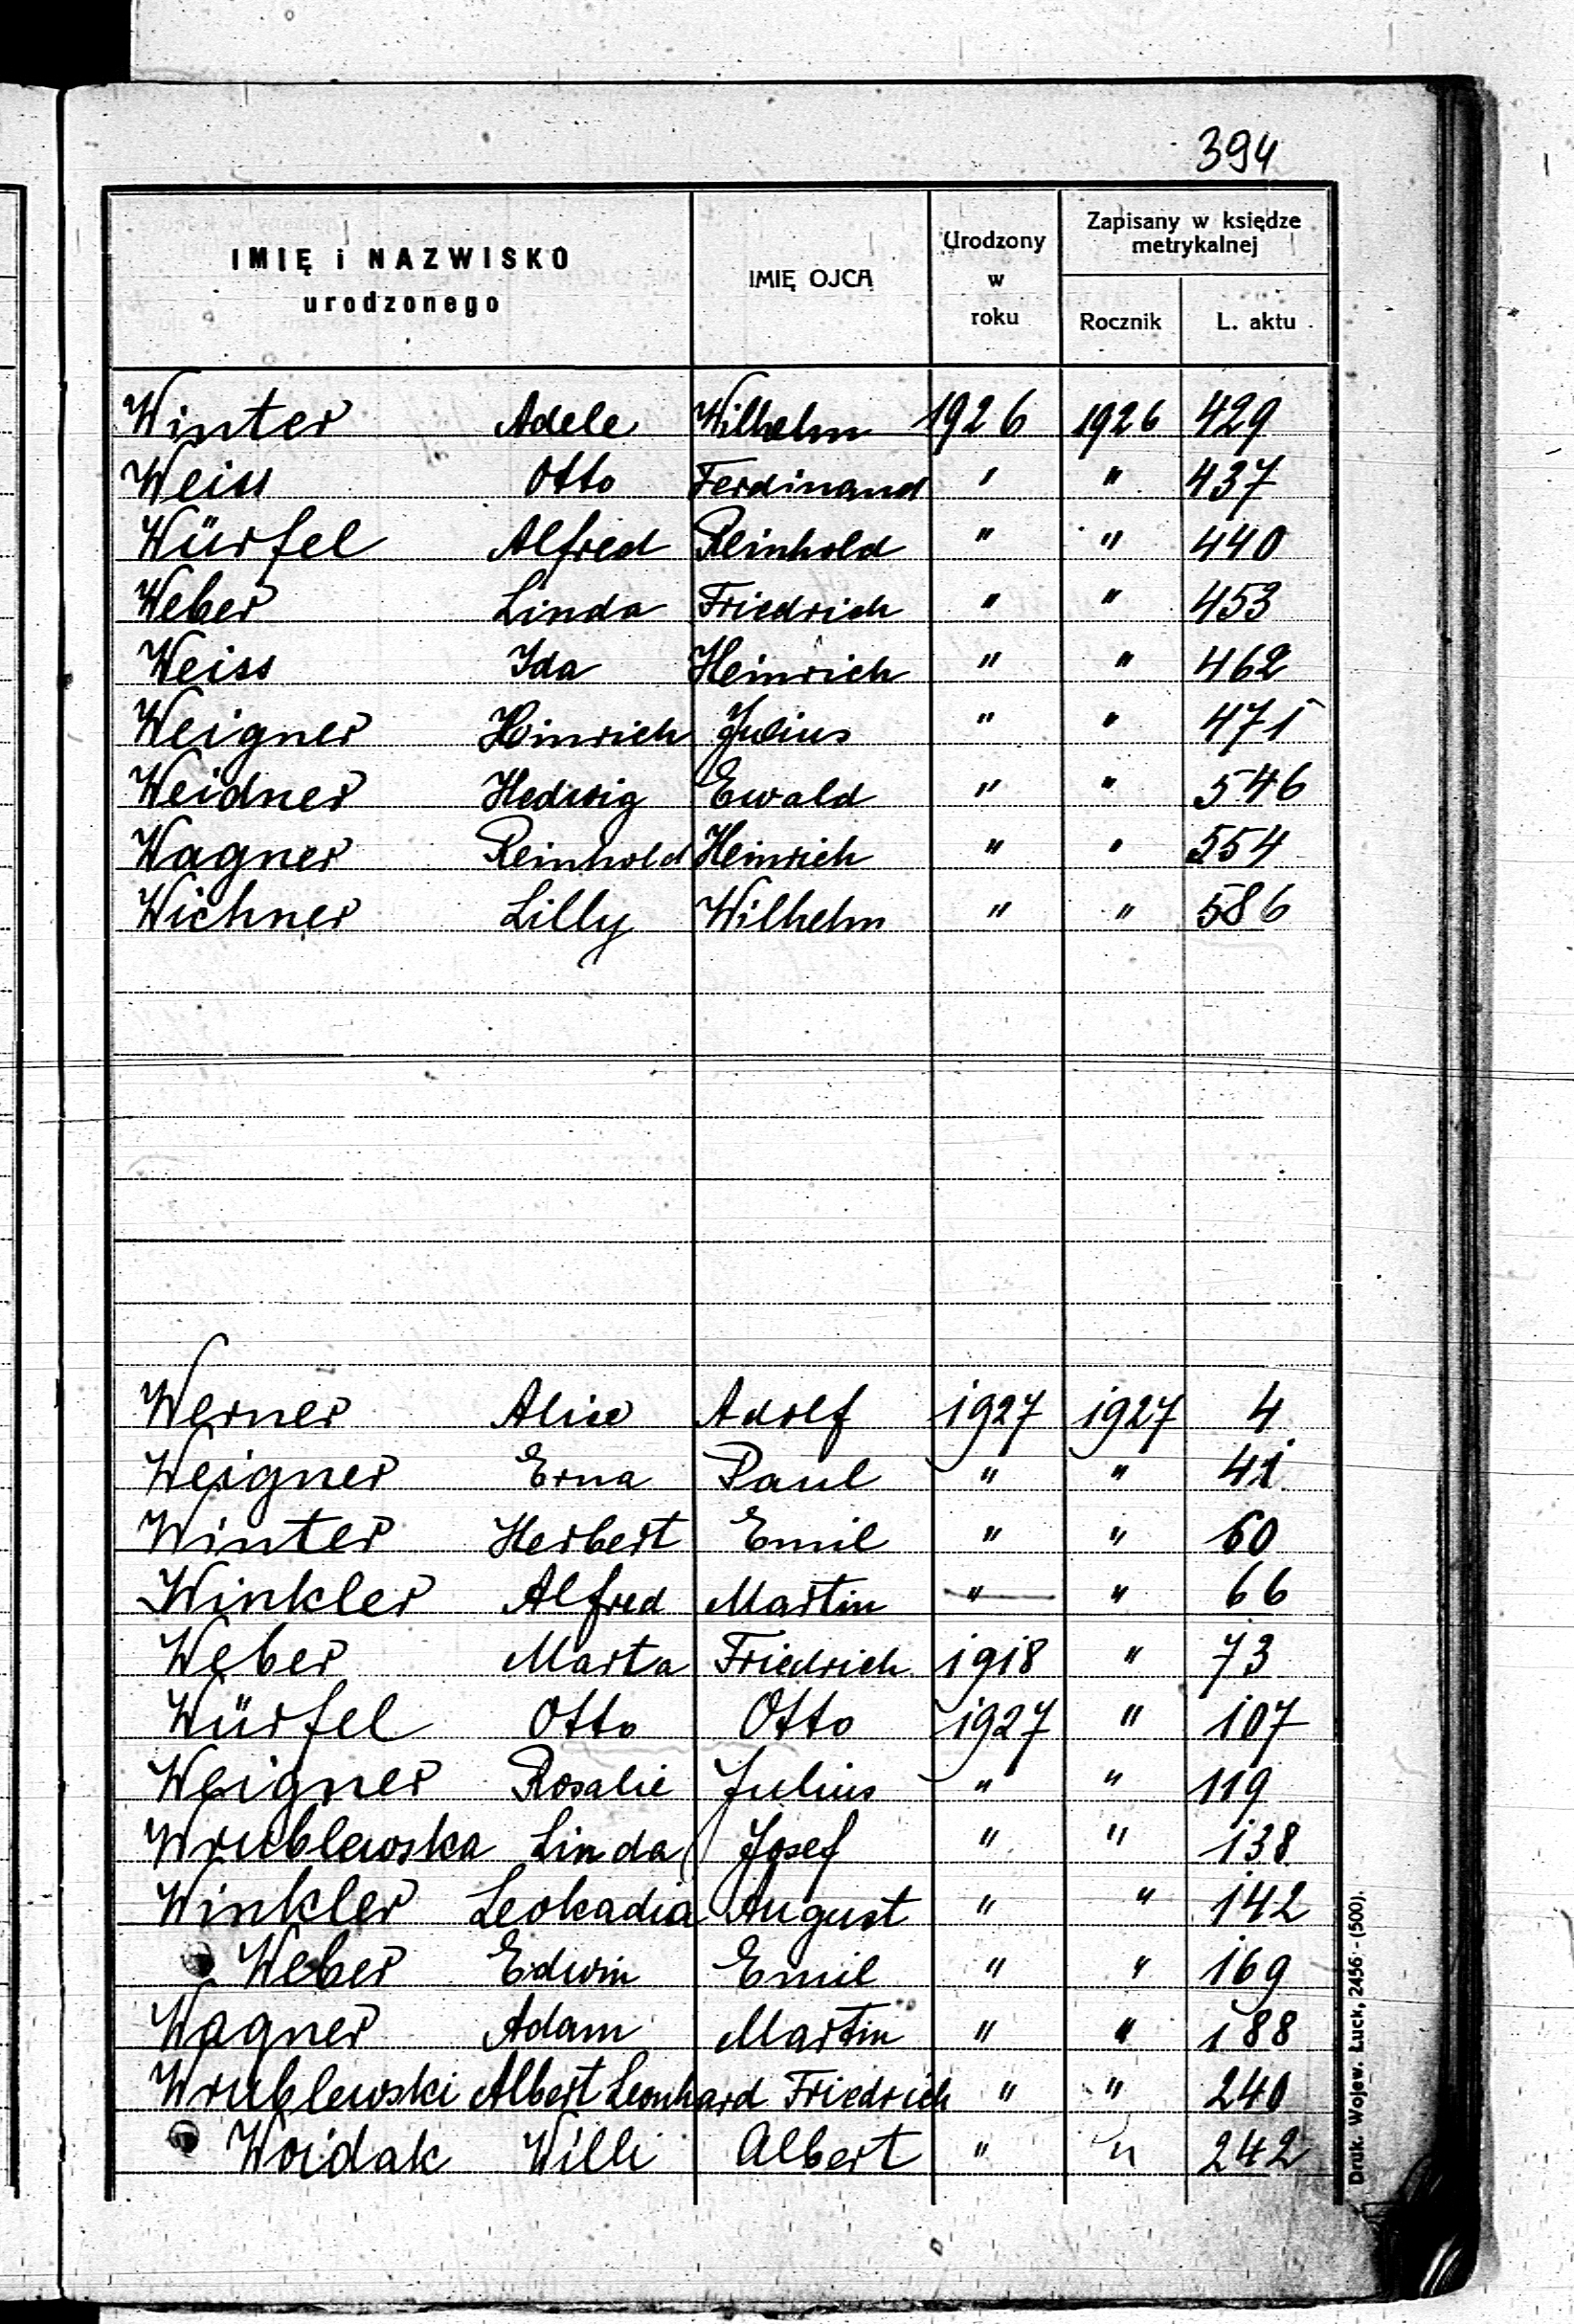 394
IMIĘ i NAZWISKO
urodzonego
IMIĘ OJCA
Urodzony
w
roku
Zapisany w księdze
metrykalnej
Rocznik
L. aktu
Winter Adele Wilhelm 1926 1926 429
Weiss Otto Ferdinand " " 437
Würfel Alfred Reinhold " " 440
Weber Linda Friedrich " " 453
Weiss Ida Heinrich " " 462
Weigner Heinrich Julius " " 471
Weidner Hedwig Ewald " " 546
Wagner Reinhold Heinrich " " 554
Wichner Lilly Wilhelm " " 586
Werner Alice Adolf 1927 1927 4
Weigner Erna Paul " " 41
Winter Herbert Emil " " 60
Winkler Alfred Martin " " 66
Weber Marta Friedrich 1918 " 73
Würfel Otto Otto 1927 " 107
Weigner Rosalie Julius " " 119
Wrublewska Linda Josef " " 138
Winkler Leokadia August " " 142
Weber Edwin Emil " " 169
Wagner Adam Martin " " 188
Wrublewski Albert Leonhard Friedrich " " 240
Woidak Willi Albert " " 242
Druk. Wojew. Łuck, 2456 - (500).